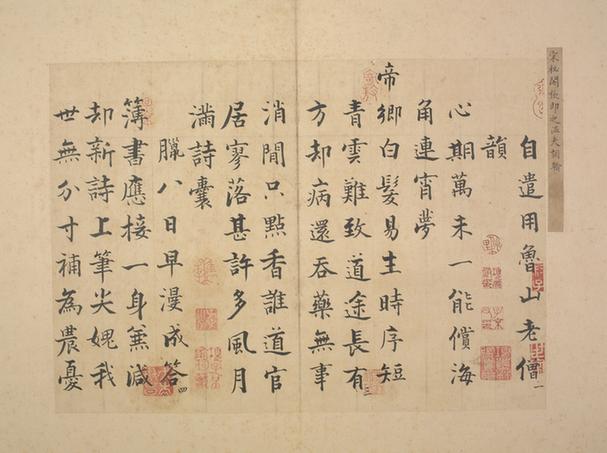 宋秘閣張即之溫夫詞翰
自遣用魯山老僧
一
韻
心期萬未一能償海
角連宵夢
帝鄉白髮易生時序短
青雲難致道途長有
三
方却病還吞藥無事
消閒只點香誰道官
居寥落甚許多風月
滿詩囊
臘八日早漫成答
四
簿書應接一身兼減
却新詩上筆尖媿我
世無分寸補為農憂